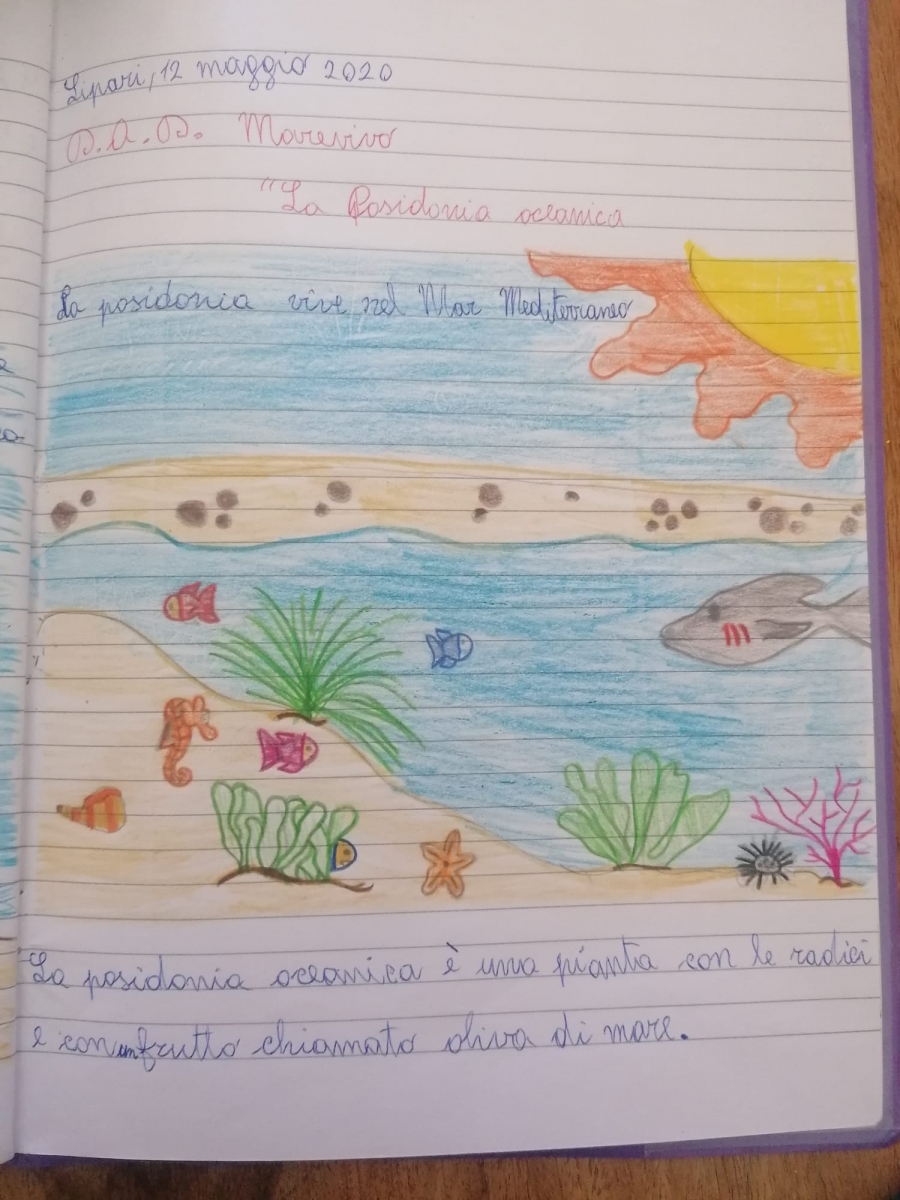 Lipari, 12 maggio 2020
D.A.D. Marevivo
"La Posidonia oceanica
La posidonia vive nel Mar Mediterraneo
La posidonia oceanica è una pianta con le radici
e con un frutto chiamato oliva di mare.